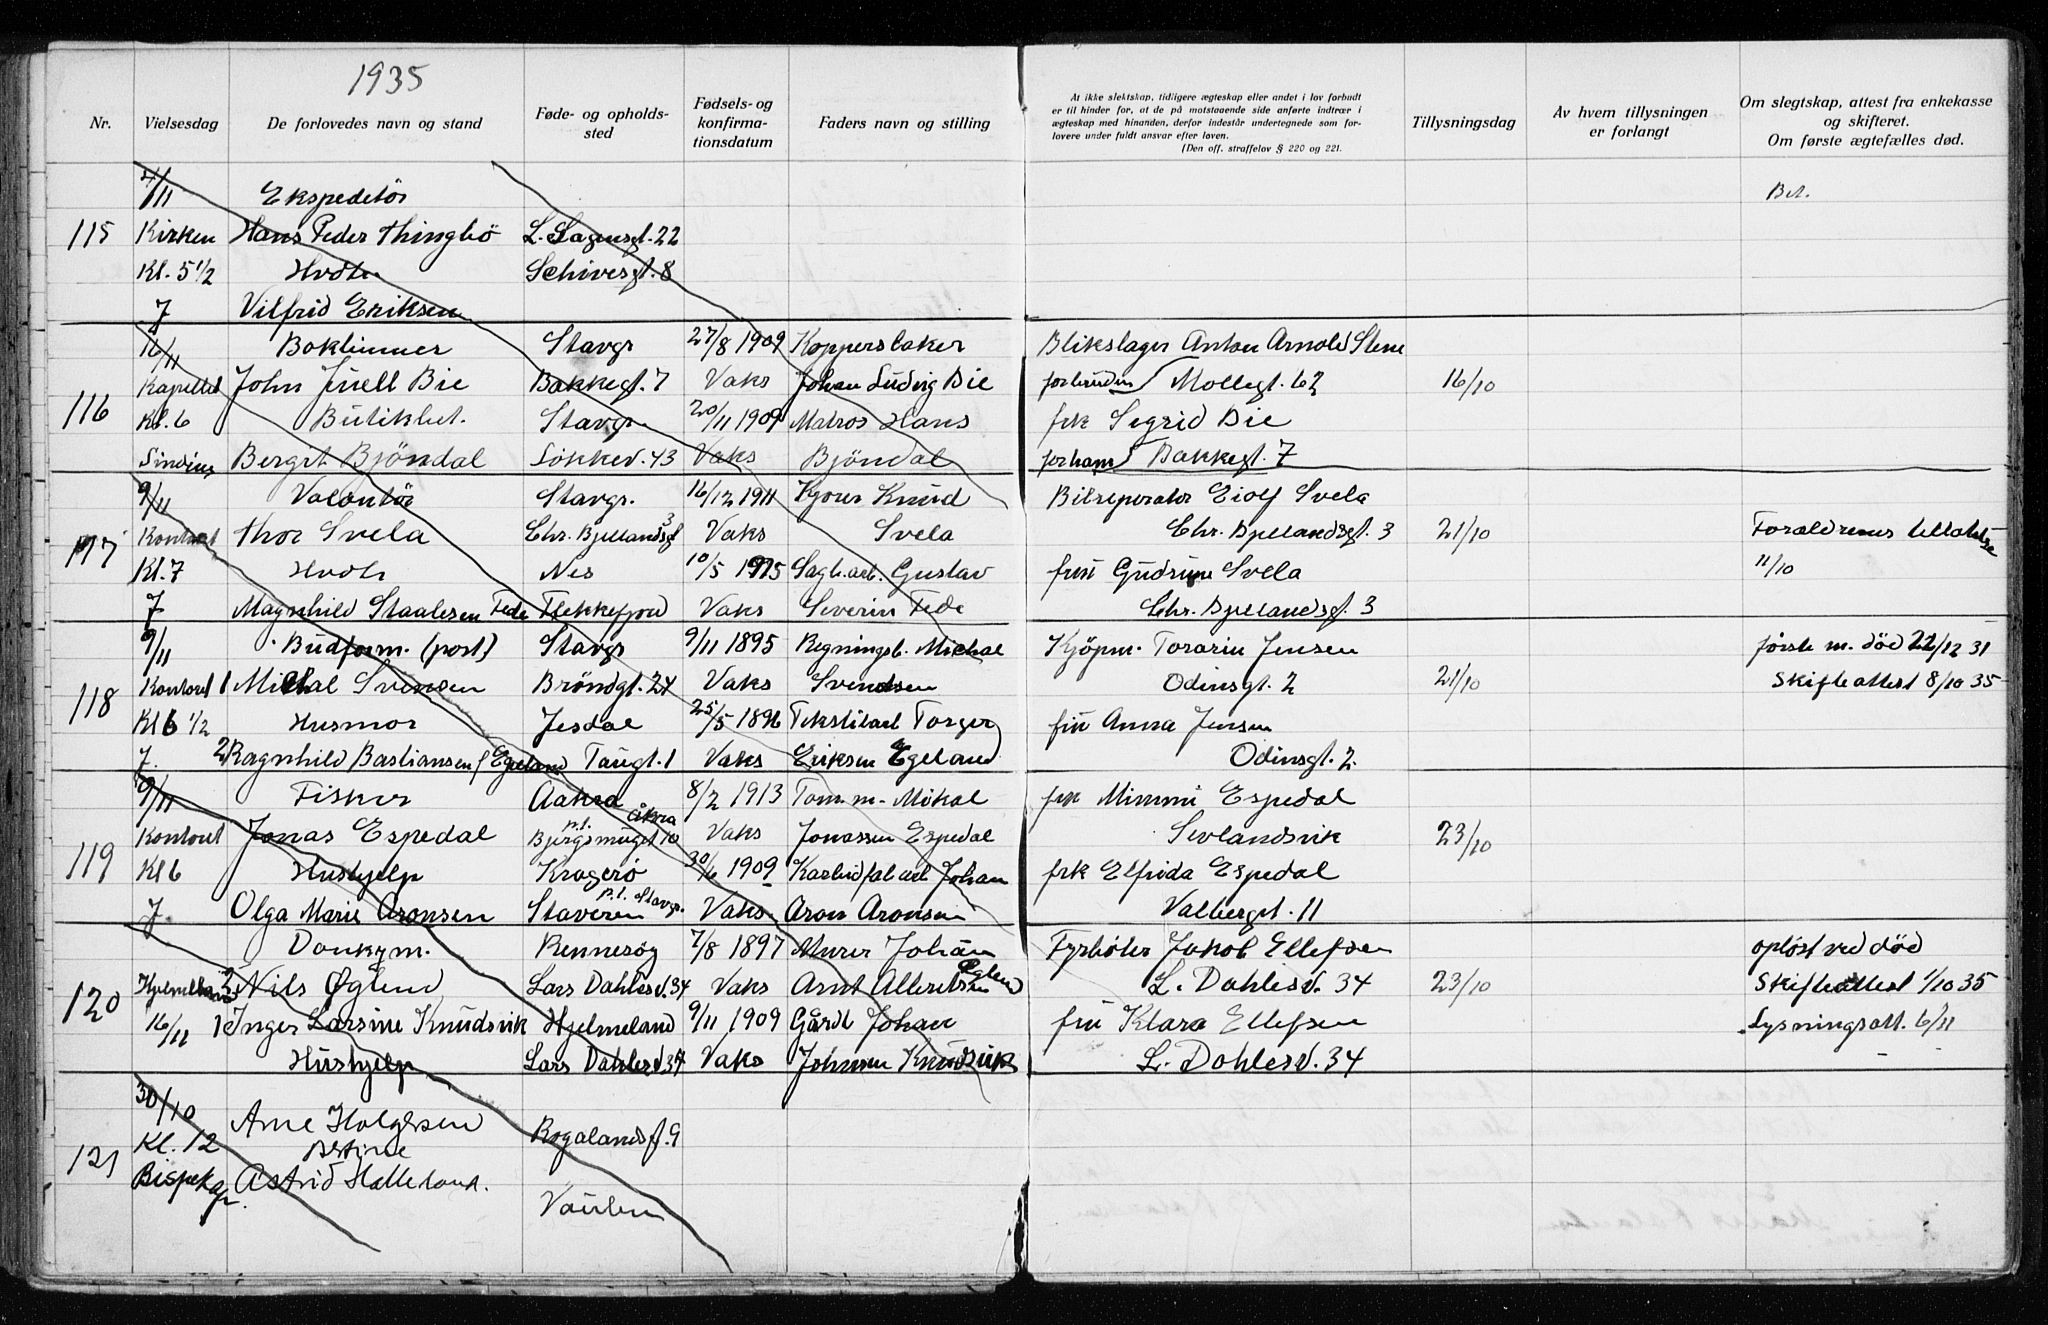 1935
Nr.
Vielsesdag
De forlovedes navn og stand
Føde- og opholds-
sted
Fødsels- og
konfirma-
tionsdatum
Faders navn og stilling
At ikke slektskap, tidligere ægteskap eller andet i lov forbudt
er til hinder for, at de på motstaaende side anførte indtrær i
ægteskap med hinanden, derfor indestår undertegnede som for-
lovere under fuldt ansvar efter loven.
(Den off. straffelov § 220 og 221.
Tillysningsdag
Av hvem tillysningen
er forlangt
Om slegtskap, attest fra enkekasse
og skifteret.
Om første ægtefælles død.
Ekspeditør Bet.
115 Kirken Hans Peder Thingbø L. Sagensgt. 22
Kl. 5 1/2 Hvdtr Schivesgt. 8
7 Vilfrid Eriksen
16/11 Stavgr 27/8 1909 Blikslager Anton Arnold Stene
116 Kapellet John Juell Bie Bakkegt. 7 Vaks Johan Ludvig Bie for bruden Møllegt. 62 16/10
Kl. 6 Butikbet. Stavgr 20/11 1909 Matros Hans frk Sigrid Bie
Bergit Bjøndal Løkkev. 43 Vaks Bjøndal for ham Bakkegt. 7
9/11 Volontør Stavgr. 16/12 1911 Knud Svela Bilreperatør Eiolf Svela
117 Kontoret Thor Svela Chr. Bjellandsgt 3 Vaks Chr. Bjellandsgt. 3 21/10 Forældrenes tillatelse
Kl. 7 Hvdtr Nes 10/5 1915 Sagb.arb. Gustav fru Gudrune Svela 11/10
7 Magnhild Staalesen Fede Flekkefjord Vaks Severin Fede Chr. Bjellandsgt. 3
9/11 Budform. (post) Stavgr 9/11 1895 Regningsb. Michal Kjøpm. Torarin Jensen første m. død 22/12 31
118 Kontoret 1 Michal Svendsen Brøndgt. 24 Vaks Svendsen Odinsgt. 2 21/10 Skifteattest 8/10 35
Kl 6 1/2 Husmor Jesdal 25/5 1896 Tekstilarb Torger fru Anna Jensen
7. 2 Ragnhild Bastiansen f Egeland Taugt. 1 Vaks Eriksen Egeland Odinsgt. 2
9/11 Fisker Aakra 8/2 1913 Tom.m. Mikal frk Mimmi Espedal
119 Kontoret Jonas Espedal p.t. Åkra Bjergsmuget 10 Vaks Jonassen Espedal Sevlandsvik 23/10
Kl 6 Hushjelp Kragerø 30/6 1909 Karbidfab arb Johan frk Elfrida Espedal
7 Olga Marie Aronsen Staveren p.t. Stavgr. Vaks Aron Aronsen Valbergt. 11
Donkym. Rennesøy 7/8 1897 Murer Johan Fyrbøter Jakob Ellefsen opløst ved død
120 Hjelmeland 2 Nils Øglend Lars Dahlesv. 34 Vaks Arnt Albretsen Øglend L. Dahlesv. 34 23/10 Skifteattest 1/10 35
16/11 1 Inger Larsine Knudsvik Hjelmeland 9/11 1909 Gårdb Johan fru Klara Ellefsen Lysningsatt. 6/11
Hushjelp Lars Dahlesv 34 Vaks Johnsen Knudsvik L. Dahlesv. 34
30/10 Arne Holgersen
121 Kl. 12 Bertine Rogalandsg. 9
Bispekap. Astrid Halleland.
Vaulen